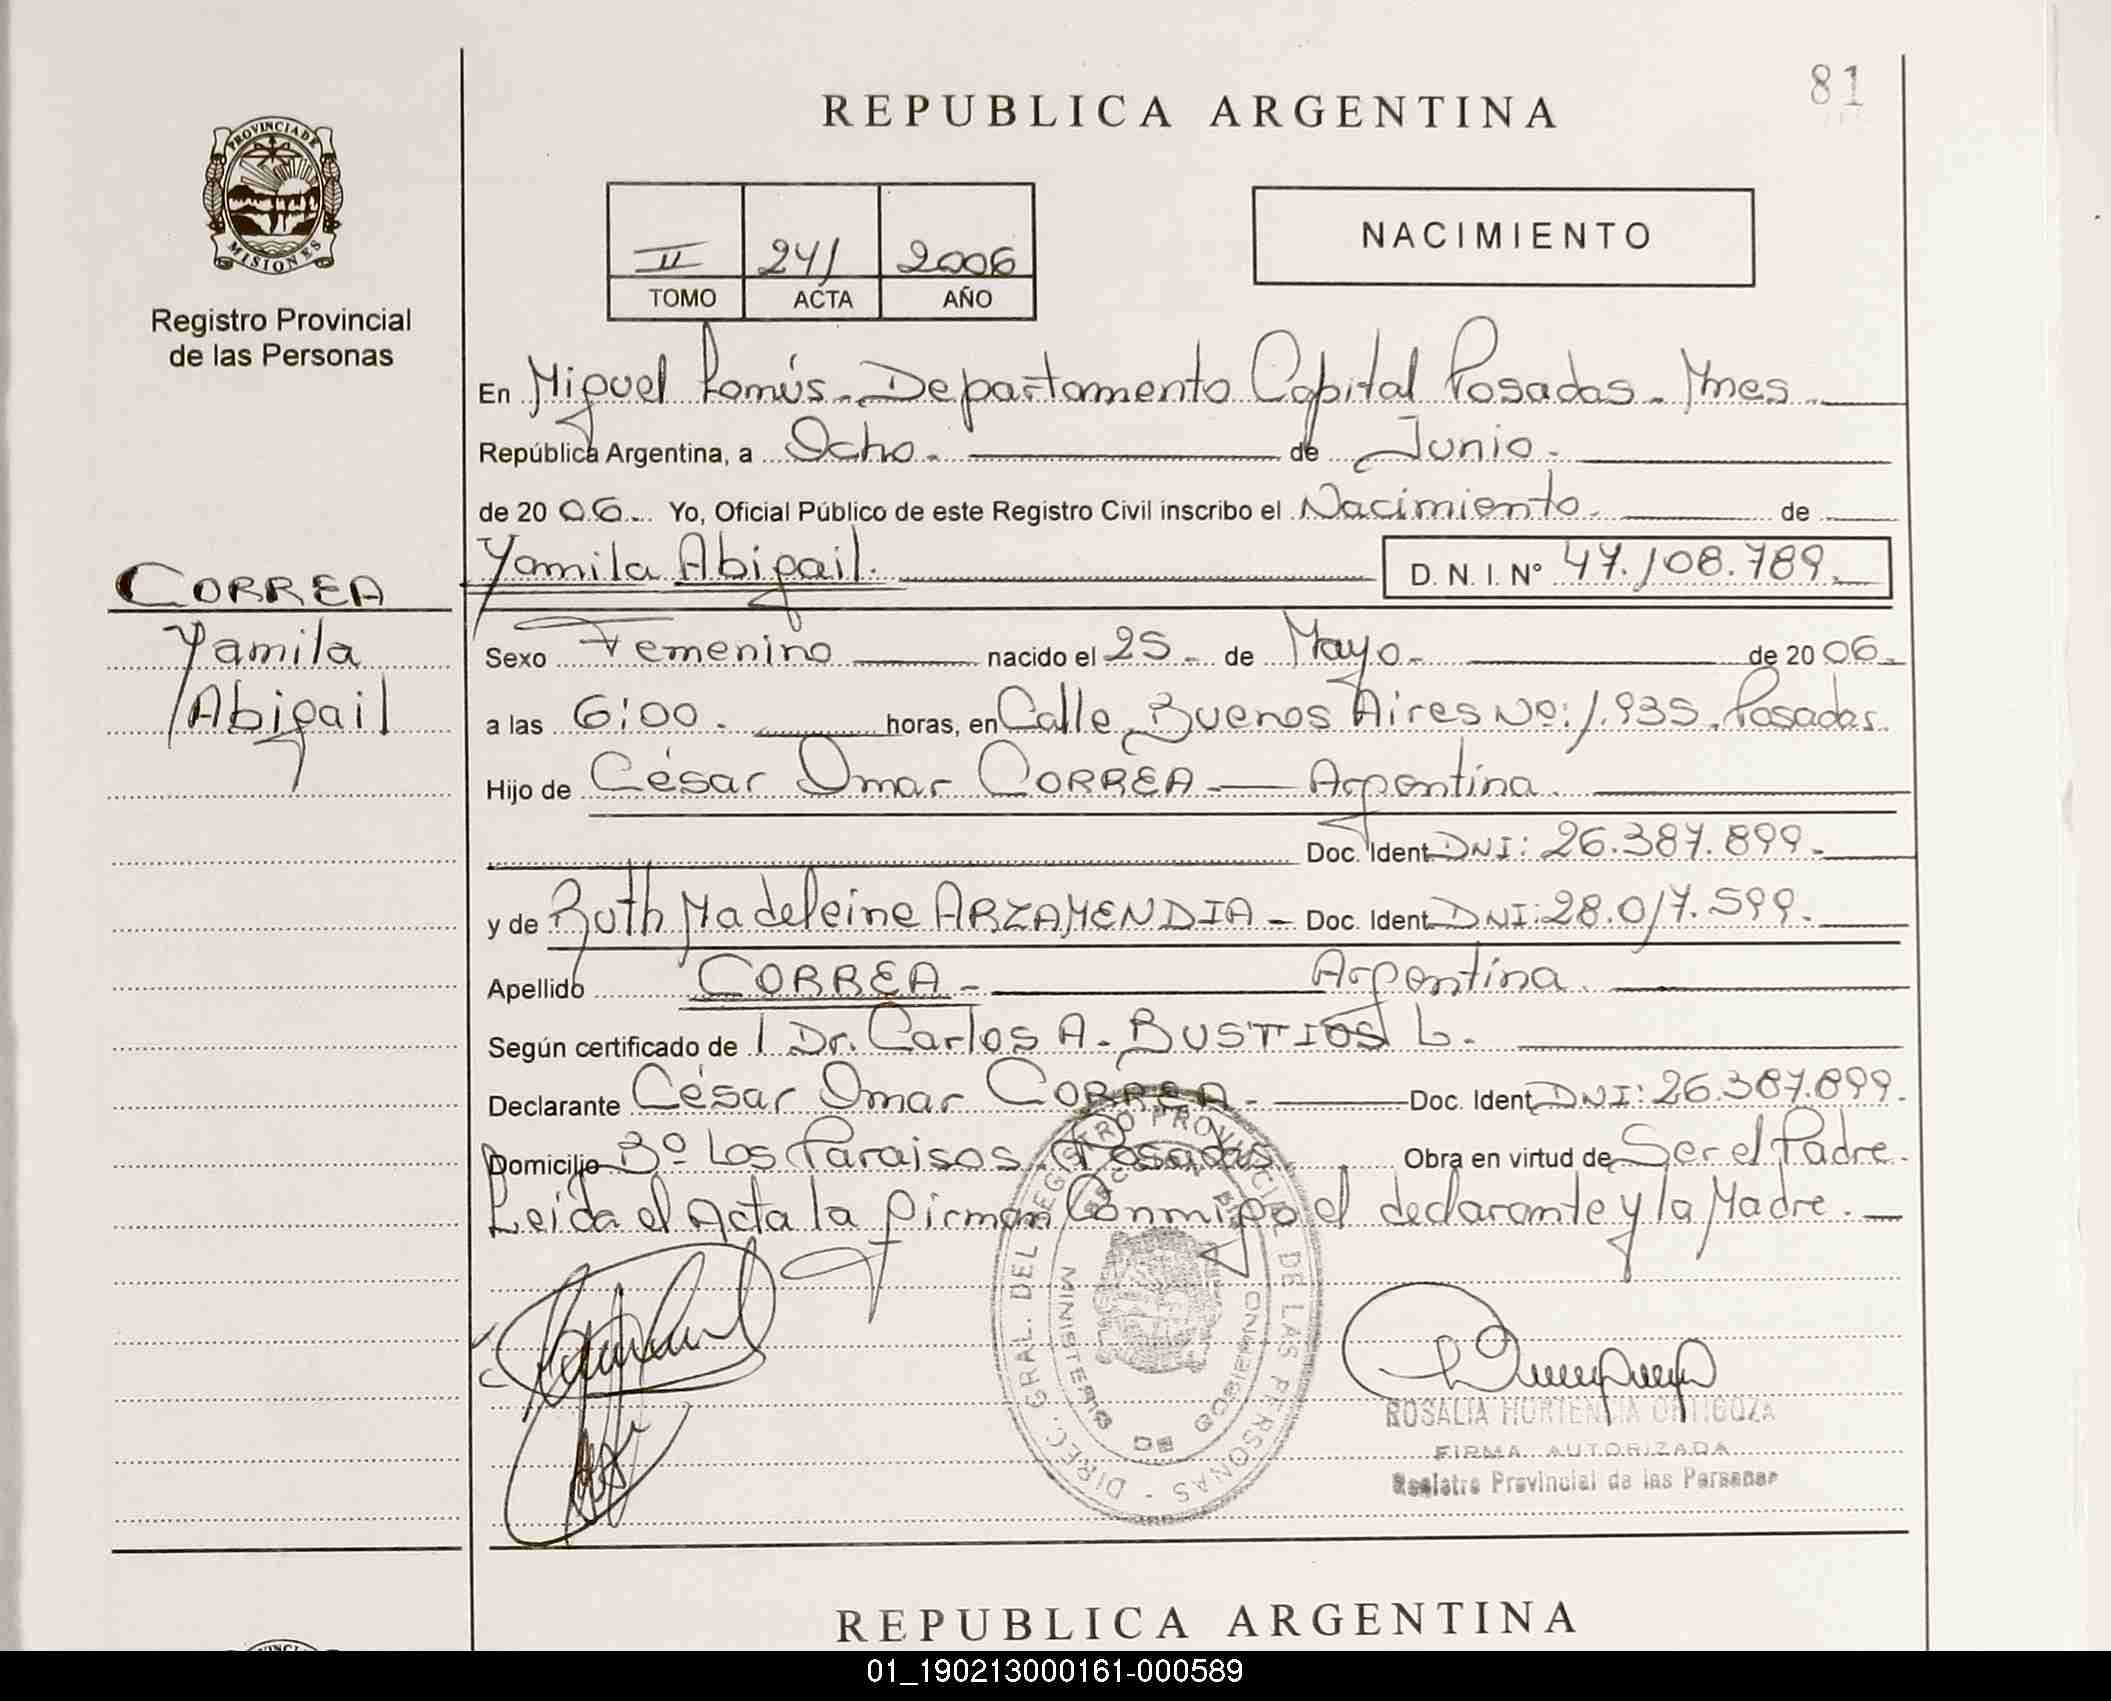 81
REPUBLICA ARGENTINA
PROVINCIA DE
MISIONES
Registro Provincial
de las Personas
II 241 2006
TOMO ACTA AÑO
NACIMIENTO
En Miguel Lanús - Departamento Capital Posadas - Mnes.
República Argentina, a Ocho. de Junio.
de 2006. Yo, Oficial Público de este Registro Civil inscribo el Nacimiento. de
Yamila Abigail. D. N. I. Nº 47.108.789.
CORREA
Yamila
Abigail
Sexo Femenino nacido el 25 - de Mayo - de 2006.
a las 6:00. horas, en Calle Buenos Aires Nº: 1.935. Posadas.
Hijo de César Omar CORREA - Argentina.
Doc. Ident. DNI: 26.387.899.
y de Ruth Madeleine ARZAMENDIA - Doc. Ident. DNI: 28.017.599.
Apellido CORREA - Argentina.
Según certificado de 1 Dr. Carlos A. BUSTIOS L.
Declarante César Omar CORREA - Doc. Ident. DNI: 26.387.899.
Domicilio Bº Los Paraisos. Posadas Obra en virtud de Ser el Padre.
Leída el Acta la firman Conmigo el declarante y la Madre.
DIREC. GRAL. DEL REGISTRO PROVINCIAL DE LAS PERSONAS
MINISTERIO DE GOBIERNO
ROSALIA HORTENCIA ORTIGOZA
FIRMA AUTORIZADA
Registro Provincial de las Personas
REPUBLICA ARGENTINA
01_190213000161-000589